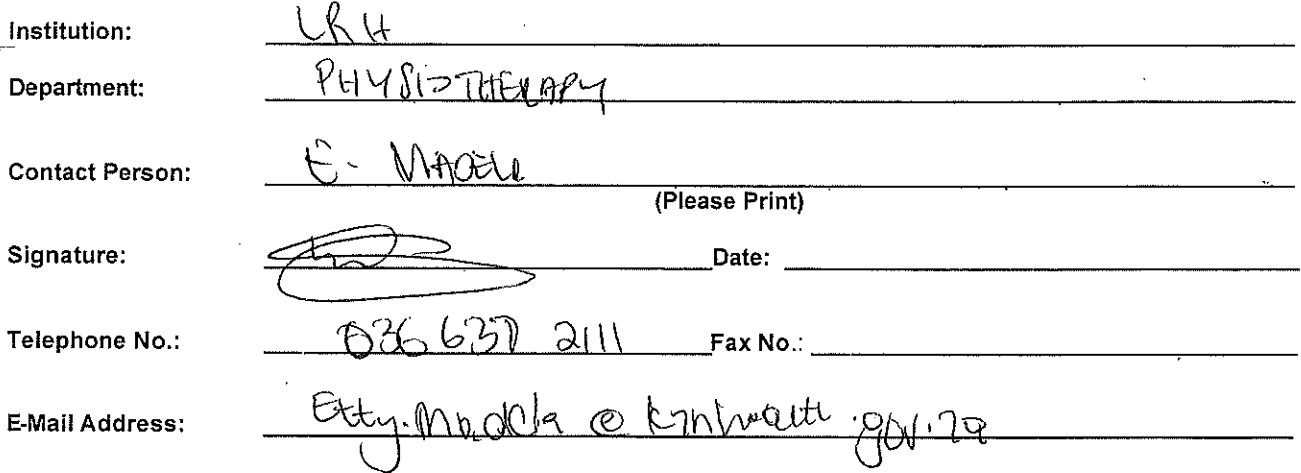 Institution: LRH
Department: PHYSIOTHERAPY
Contact Person: E.
(Please Print)
Signature: Date:
Telephone No.: 036 637 2111 Fax No.:
E-Mail Address: Etty. @ kznhealth.gov.za